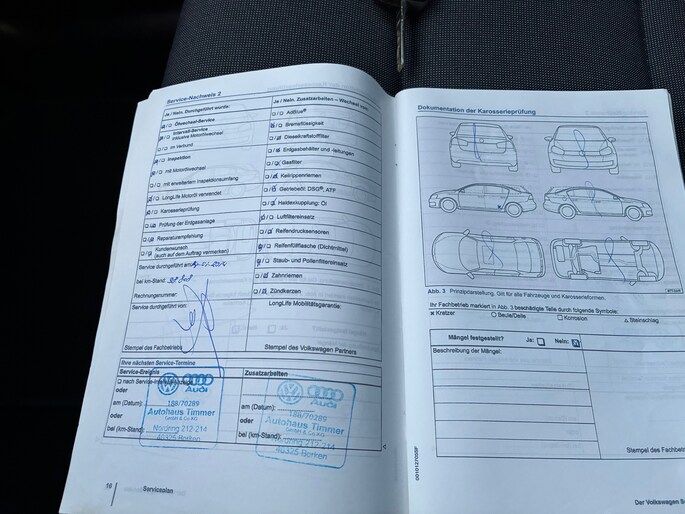 Service-Nachweis 2
Ja / Nein, Durchgeführt wurde:
Ölwechsel-Service
Intervall-Service
inklusive Motorölwechsel
im Verbund
Inspektion
mit Motorölwechsel
mit erweitertem Inspektionsumfang
LongLife Motoröl verwendet
Karosserieprüfung
Prüfung der Erdgasanlage
Reparaturempfehlung
Kundenwunsch
(auch auf dem Auftrag vermerken)
Service durchgeführt am:
bei km-Stand:
Rechnungsnummer:
Service durchgeführt von:
Stempel des Fachbetriebs
Ja / Nein, Zusatzarbeiten – Wechsel von:
AdBlue®
Bremsflüssigkeit
Dieselkraftstofffilter
Erdgasbehälter und -leitungen
Gasfilter
Keilrippenriemen
Getriebeöl: DSG®, ATF
Haldexkupplung: Öl
Luftfiltereinsatz
Reifendrucksensoren
Reifenfüllflasche (Dichtmittel)
Staub- und Pollenfiltereinsatz
Zahnriemen
Zündkerzen
LongLife Mobilitätsgarantie:
Stempel des Volkswagen Partners
Ihre nächsten Service-Termine
Service-Ereignis
nach Service-Intervallanzeige
oder
am (Datum):
oder
bei (km-Stand):
Audi
188/70289
Autohaus Timmer
GmbH & Co.KG
Nordring 212-214
46325 Borken
Zusatzarbeiten
am (Datum):
oder
bei (km-Stand):
Audi
188/70289
Autohaus Timmer
GmbH & Co.KG
Nordring 212-214
46325 Borken
16 Serviceplan
Dokumentation der Karosserieprüfung
Abb. 3 Prinzipdarstellung, Gilt für alle Fahrzeuge und Karosserieformen.
Ihr Fachbetrieb markiert in Abb. 3 beschädigte Teile durch folgende Symbole:
× Kratzer ○ Beule/Delle □ Korrosion △ Steinschlag
Mängel festgestellt? Ja: Nein:
Beschreibung der Mängel:
Stempel des Fa
Der Volkswagen S